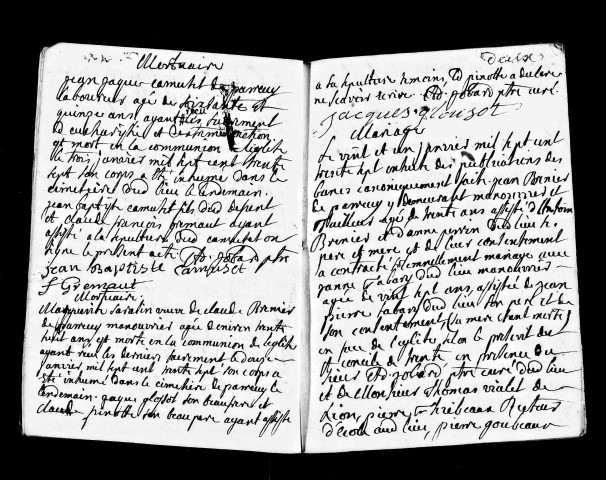 Mortuaire
jean jaque camuset de parrecy
laboureur agé de soixante et
quinze ans ayant reçu sacrement
d eucharistie et
est mort en la communion de leglise
le trois janvier mil sept cent trente
sept son corps a été inhumé dans le
cimetiere dud lieu le lendemain.
jean baptiste camuset fils dud defunt
et claude francois bremaut ayant
assisté a la sepulture dud camuset on
signe le present acte. Fd gobard ptre
Jean Baptiste Camuset
f Bremaut
Mortuaire.
Marguerite Saratin veuve de claude Bernier
de parrecy manouvrier agée denviron trente
huit ans est morte en la communion de leglise
ayant reçu les derniers sacrement le douze
janvier mil sept cent trente sept son corps a
été inhumé dans le cimetiere de parrecy le
lendemain. jaque plossot son beaupere et
claude pinotte son beaupere ayant assisté
deux
a sa sepulture temoins, Fd pinotte a declaré
ne scavoir ecrire. Fd. gobard ptre curé.
jacques plousot
Mariage
Le vint et un janvier mil sept cent
trente sept ensuite des publications des
bancs canoniquement faits jean Bernier
de parrecy y demeurant manouvrier et
agé de trente ans assisté d
Bernier et danne perren dud lieu ses
pere et mere et de leur consentement
a contracté solennellement mariage avec
janne fabary dud lieu manouvriere
agée de vint sept ans, assistée de jean
pierre fabary dud lieu son pere et de
son consentement, (sa mere etant morte)
en face de l'eglise, selon le prescrit du
st concile de trente en presence du
sieur Fd. gobard ptre curé dud lieu
et de Monsieur Thomas violet de
Lion, pierre Recteur
d'ecole aud lieu, pierre goubeaux